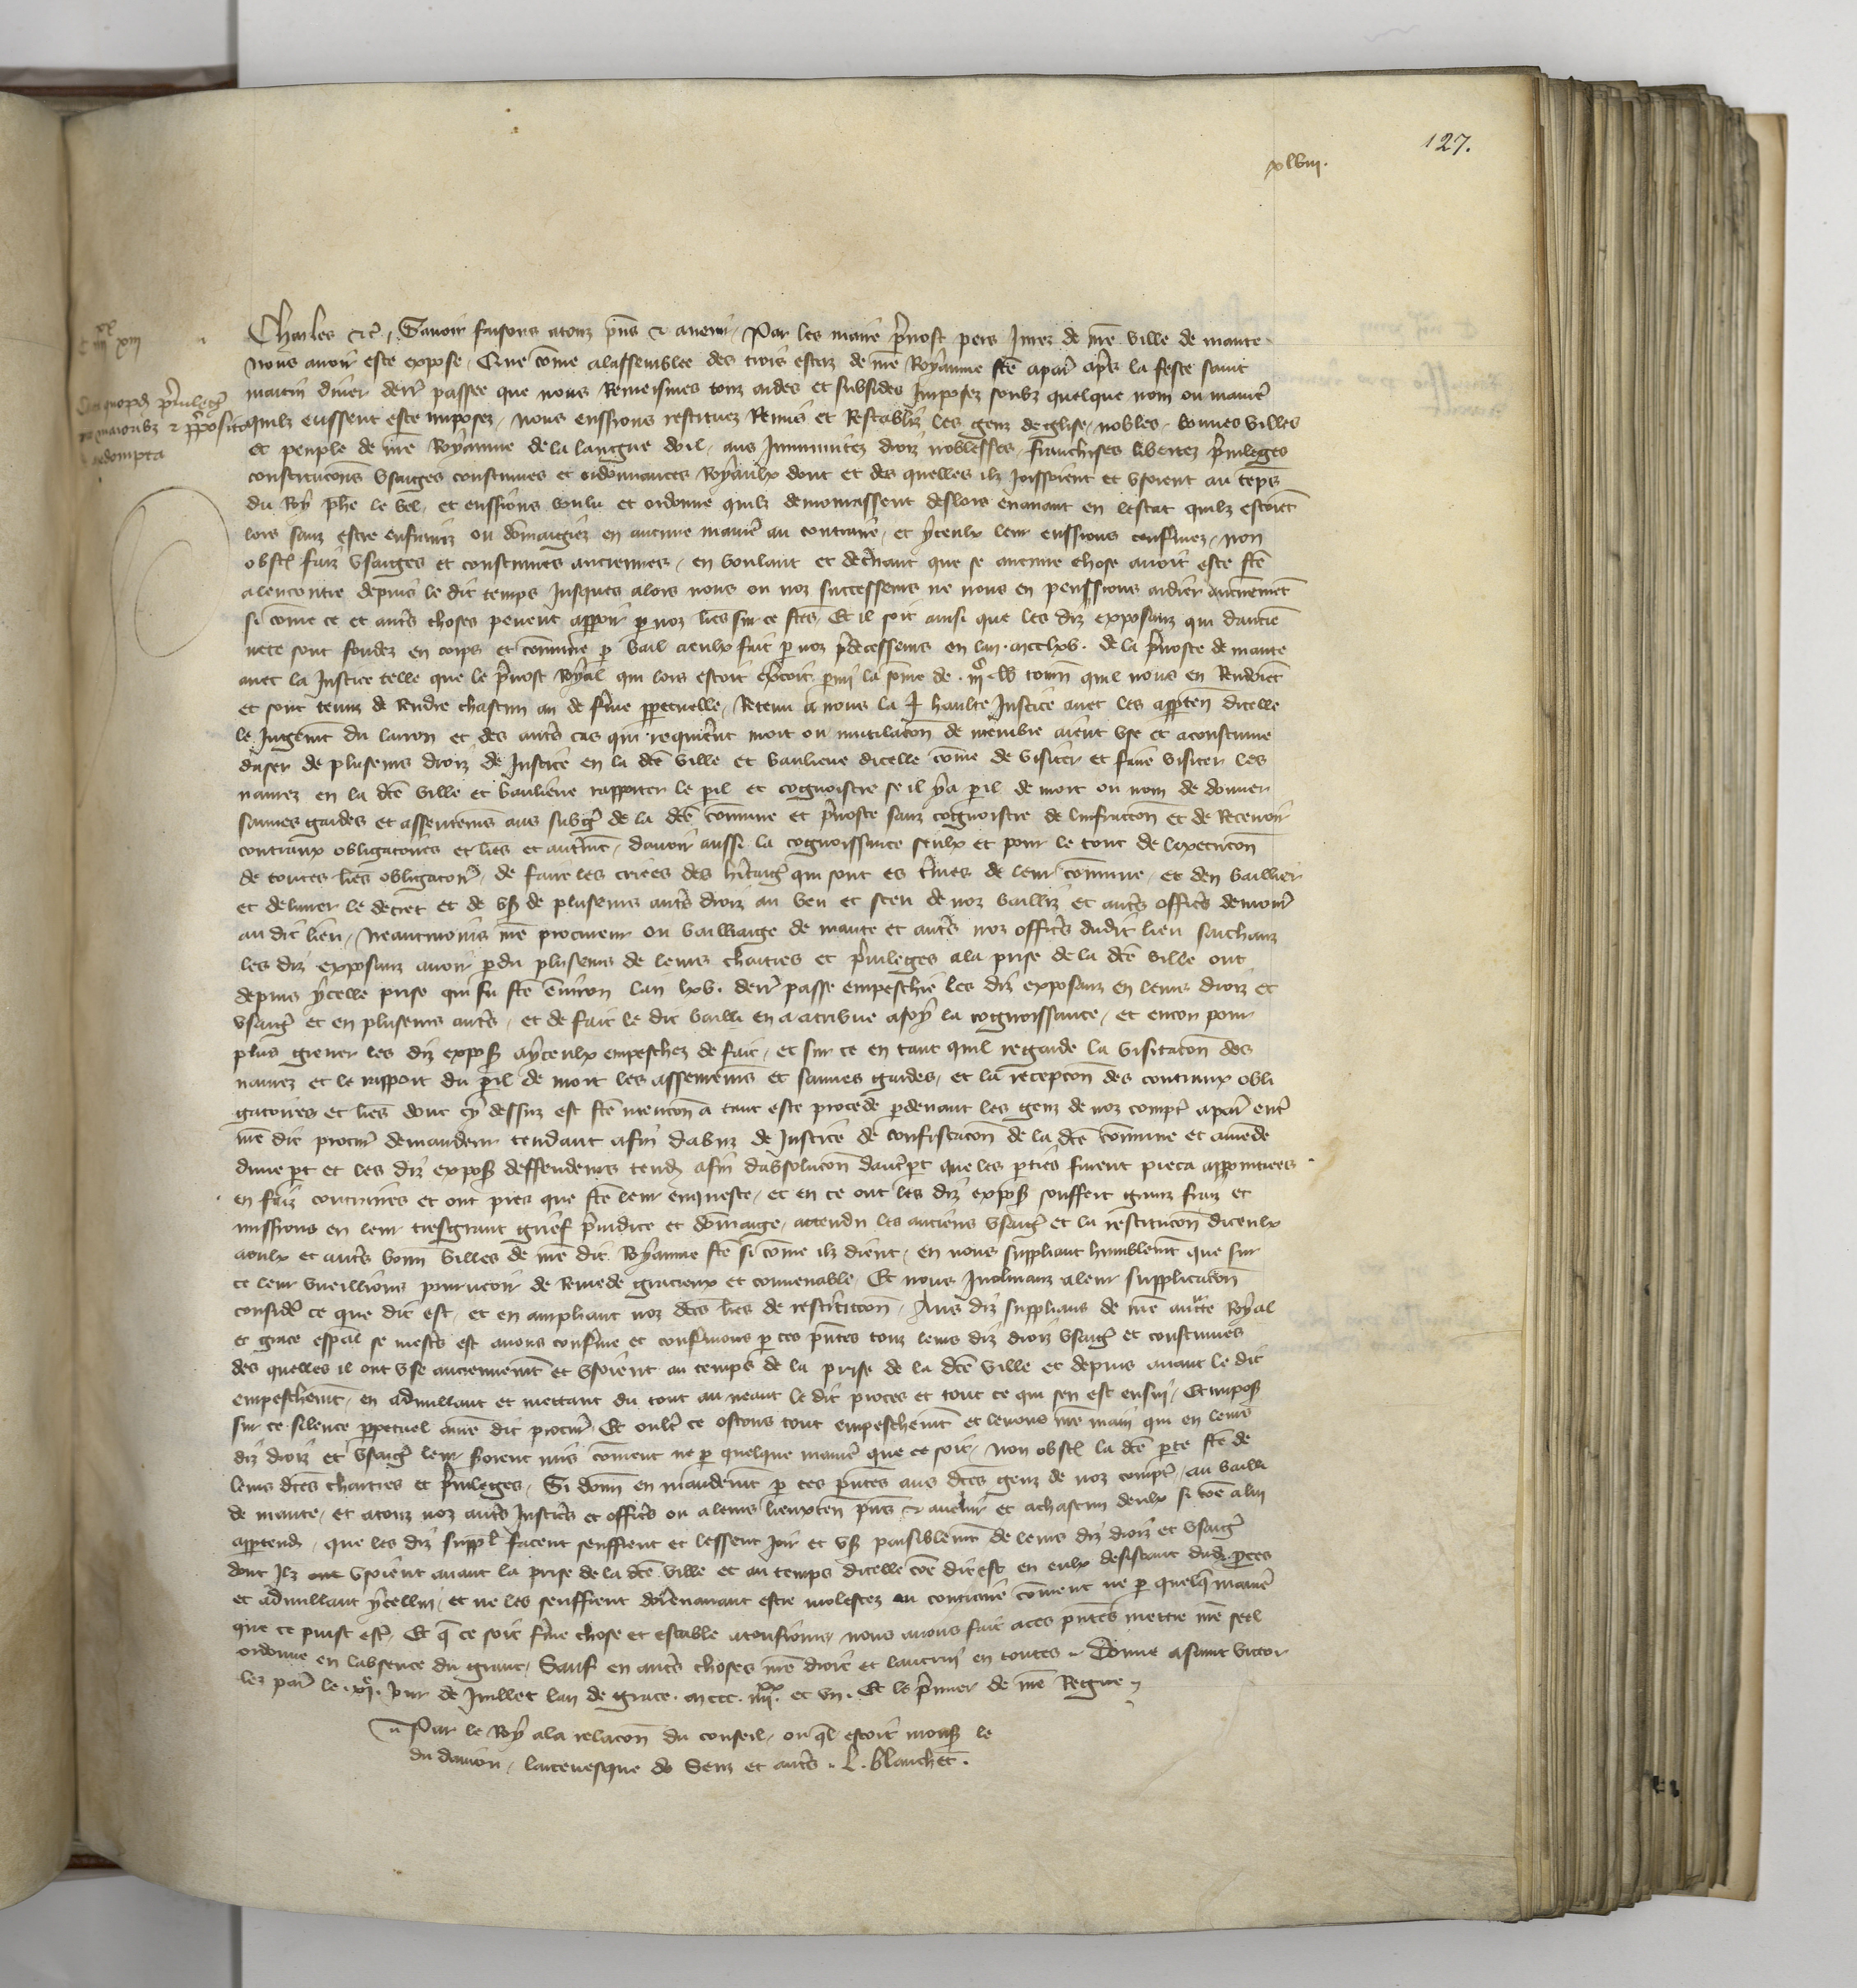 127.
xlviii.
C iiii xx xiii
privilegiorum
maioribus et preposito
Charles etc. Savoir faisons a touz pñs et avenir. Par les maire p̃vost pers Jurez de nr̃e ville de mante
nous avoir este expose, Que cõme a lassemblee des trois estaz de nr̃e Royaume fcẽ a par̃ apr̃s la feste saint
martin diver derr̃ passee que nous Remeismes touz aides et subsides Imposez soubz quelque nom ou manier̃
quilz eussent este imposez, nous eussions restituez Remis et Restabliz les genz deglise, nobles, bonnes villes
et peuple de nr̃e Royaume de la langue doil, aus Immunitez droiz noblesses, franchises libertez p̃vileges
constitucions usaiges coustumes et ordonnances Royaulx dont et des quelles ilz Joissoient et usoient au tẽps
du Roy phẽ le bel, et eussions voulu et ordonne quilz demourassent deslors enavant en lestat quilz estoiẽt
lors sanz estre enfrainz ou dõmagiez en aucune manier̃ au contraire, et yceulx leur eussions confermez, non
obstz faiz usaiges et coustumes anciennes, en voulant et decrnant que se aucune chose avoit este fcẽ
a lencontre depuis le dit temps Jusques alors nous ou noz successeurs ne nous en peussions aidier aucunemẽt
si cõme ce et autr̃s choses pevent apparoir p noz lr̃es sur ce fcẽs, Et il soit ainsi que les diz exposanz qui dancie
nete sont fondez en corps et cõmune p bail a eulx fait p noz p̃decesseurs en lan . mcclxv . de la p̃voste de mante
avec la Justice telle que le p̃vost Royal qui lors estoit exercoit, parmi la sõme de . tourñ quil nous en Rendoiẽt
et sont tenuz de Rendre chascun an de ferme ppetuelle, Retenu a nous la haulte Justice avec les apptenñ dicelle
le Jugemt du larron et des autr̃s cas qui requierent mort ou mutilaciõn de membre aient use et acoustume
duser de pluseurs droiz de Justice en la dcẽ ville et banlieue dicelle cõme de visiter et faire visiter les
navrez en la dcẽ ville et banlieue rapporter le pil et cognoistre se il ya pil de mort ou nom de donner
sauves gardes et asseuremens aus subgiez de la dcẽ cõmune et p̃voste sanz cognoistre de linfraccõn et de Recevoir
contraux obligatoires et lr̃es et autremt, davoir aussi la cognoissance seulx et pour le tout de lexecucõn
de toutes lr̃es obligatoir̃, de faire les criees des heritaiges qui sont es termes de leur cõmune, et den baillier
et delivrer le decret et de us de pluseurs autr̃s droiz au veu et sceu de noz bailliz et autr̃s officrs demour̃
au dit lieu, Neantmoins nr̃e procureur ou bailliaige de mante et autr̃s noz officrs dudit lieu saichanz
les diz exposanz avoir pdu pluseurs de leurs chartres et p̃vileges a la prise de la dcẽ ville ont
depuis ycelle prise qui fu fcẽ environ lan lxv. derr̃ passe empeschie les diz exposanz en leurs droiz et
usaiges et en pluseurs autr̃s, et de fait le dit bailli en a atribue a soy la cognoissance, et encor pour
plus grever les diz exposz a yceulx empeschez de fait, et sur ce en tant quil regarde la visitacõn des
navrez et le rapport du pil de mort les asseuremens et sauves gardes, et la recepcõn des contraux obli
gatoires et lr̃es dont cy dessus est fcẽ mencõn a tant este procede pardevant les genz de noz compt̃ a par̃ entr̃
nr̃e dit procur̃ demandeur tendant afin dabuz de Justice de confiscacõn de la dcẽ cõmune et amẽde
dune pt et les diz exposz deffendeurs tendz afin dabsolucõn dautre pt que les pties furent pieca appointees
en faiz contraires et ont pres que fcẽ leur enqueste, et en ce ont les diz exposz souffert granz fraiz et
missions en leur tresgrant grief p̃judice et dõmaige, attendu les anciens usaiges et la restitucõn diceulx
a eulx et autr̃s bonñ villes de nr̃e dit Royaume fcẽ si cõme ilz dient, en nous suppliant humblemt que sur
ce leur vueillions pourveoir de Remede gracieux et convenable, Et nous Inclinanz a leur supplicacõn
consider̃ ce que dit est, et en ampliant noz dcẽs lr̃es de restitucõn, Aus diz supplians de nr̃e aucte Royal
et grace esp̃al se mestr̃s est avons confirme et confirmons p ces pñtes touz leurs diz droiz usaiges et coustumes
des quelles il ont use anciennemt et usoient au temps de la prise de la dcẽ ville et depuis avant le dit
empeschemt, en adnullant et mettant du tout au neant le dit proces et tout ce qui sen est ensui, Et imposz
sur ce silence ppetuel a nr̃e dit procur̃, Et oultr̃ ce ostons tout empeschemt et levons nr̃e main qui en leurs
diz droiz et usaiges leur seroient mis cõment ne p quelque manier̃ que ce soit, non obstz la dcẽ pte fcẽ de
leurs dcẽs chartres et p̃vileges, Si donñ en mandemt p ces pñtes aus dcẽs genz de noz compt̃, au bailli
de mante, et a touz noz autr̃s Justiciers et officrs ou a leurs lieuxtenñ pñs et avenir et a chascun deulx si cõe a lui
apptendra, que les diz suppl facent seuffrent et lessent Joir et us paisiblemt de leurs diz droiz et usaiges
dont Ilz usoient avant la prise de la dcẽ ville et au temps dicelle cõe dit est en eulx desistant dudit pces
et adnullant ycellui, et ne les seuffrent dorenavant estre molestez au contraire cõment ne p quelq̃ manier̃
que ce puist estr̃, Et q̃ ce soit ferme chose et estable a tousiours, nous avons fait a ces pñtes mettre nr̃e seel
ordonne en labsence du grant, Sauf en autr̃s choses nr̃e droit et lautrui en toutes. Donne a saint victor
lez par̃ le . xxi . Jour de Juillet lan de grace . mccc . iiii xx et un . Et le p̃mier de nr̃e Regne
Par le Roy a la relacõn du conseil, ou q̃l estoit monsz le
duc danjou, larcevesque de Senz et autr̃s. L. blanchet.